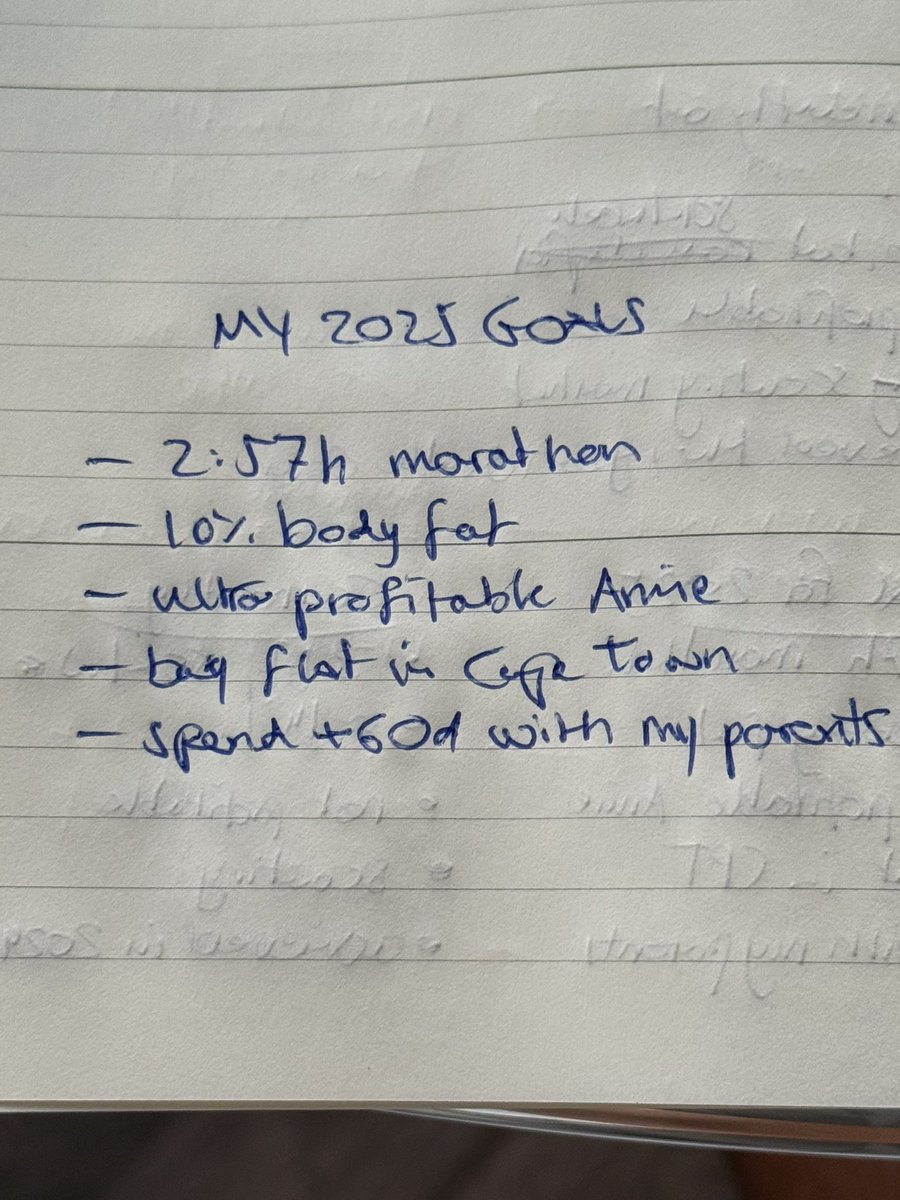 MY 2025 GOALS
- 2:57h marathon
- 10% body fat
- ultra profitable Annie
- buy flat in Cape Town
- spend +60d with my parents